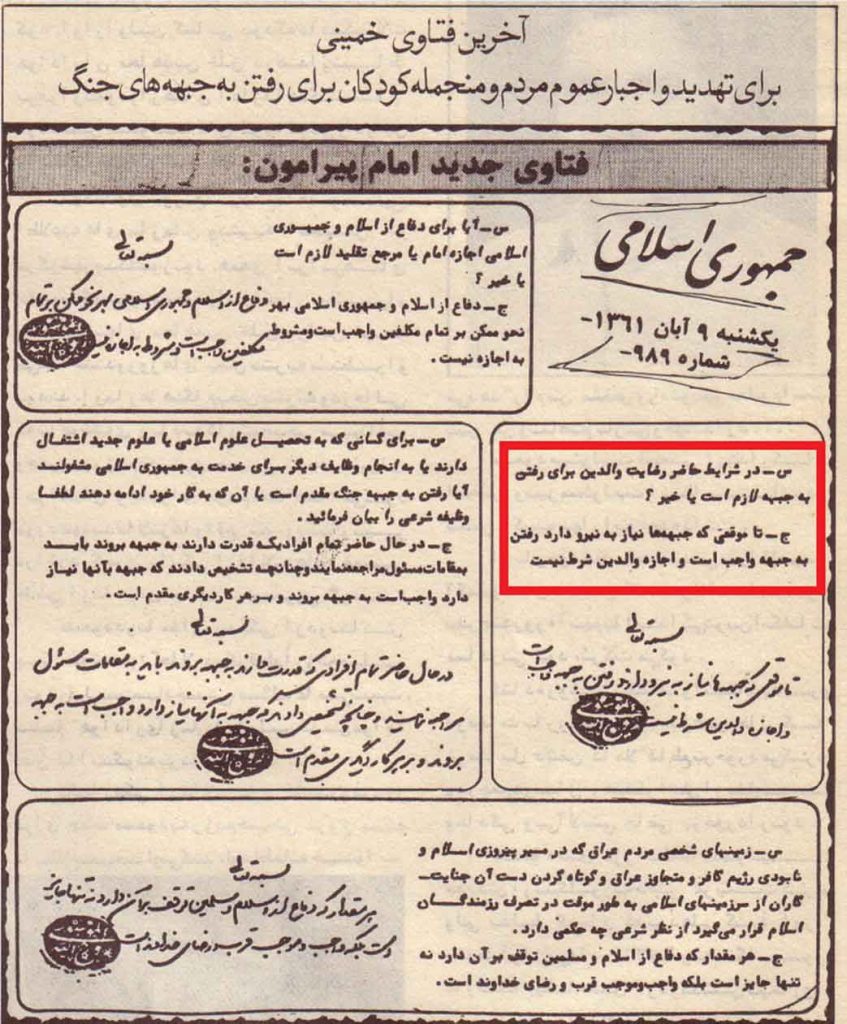 آخرین فتاوی خمینی
برای تهدید و اجبار عموم مردم و منجمله کودکان برای رفتن به جبهه های جنگ
فتاوی جدید امام پیرامون:
جمهوری اسلامی
یکشنبه ۹ آبان ۱۳۶۱-
شماره ۹۸۹-
س ـ آیا برای دفاع از اسلام و جمهوری
اسلامی اجازه امام یا مرجع تقلید لازم است
یا خیر ؟
ج ـ دفاع از اسلام و جمهوری اسلامی بهر
نحو ممکن بر تمام مکلفین واجب است و مشروط
به اجازه نیست .
بسمه تعالی
دفاع از اسلام و جمهوری اسلامی بهر نحو ممکن بر تمام
مکلفین واجب است و مشروط به اجازه نیست
س ـ در شرایط حاضر رضایت والدین برای رفتن
به جبهه لازم است یا خیر ؟
ج ـ تا موقعی که جبهه‌ها نیاز به نیرو دارد رفتن
به جبهه واجب است و اجازه والدین شرط نیست
بسمه تعالی
تا موقعی که جبهه‌ها نیاز به نیرو دارد رفتن به جبهه واجب است
و اجازه والدین شرط نیست
س ـ برای کسانی که به تحصیل علوم اسلامی یا علوم جدید اشتغال
دارند یا به انجام وظایف دیگر برای خدمت به جمهوری اسلامی مشغولند
آیا رفتن به جبهه جنگ مقدم است یا آن که به کار خود ادامه دهند لطفا
وظیفه شرعی را بیان فرمائید .
ج ـ در حال حاضر تمام افرادیکه قدرت دارند به جبهه بروند باید
بمقامات مسئول مراجعه نمایند و چنانچه تشخیص دادند که جبهه بآنها نیاز
دارد واجب است به جبهه بروند و بر هر کار دیگری مقدم است .
بسمه تعالی
در حال حاضر تمام افرادی که قدرت دارند به جبهه بروند باید به مقامات مسئول
مراجعه نمایند و چنانچه تشخیص دادند که جبهه به آنها نیاز دارد واجب است به جبهه
بروند و بر هر کار دیگری مقدم است
س ـ زمینهای شخصی مردم عراق که در مسیر پیروزی اسلام و
نابودی رژیم کافر و متجاوز عراق و کوتاه کردن دست آن جنایت‌ـ
کاران از سرزمینهای اسلامی به طور موقت در تصرف رزمندگان
اسلام قرار می‌گیرد از نظر شرعی چه حکمی دارد .
ج ـ هر مقدار که دفاع از اسلام و مسلمین توقف بر آن دارد نه
تنها جایز است بلکه واجب و موجب قرب و رضای خداوند است .
بسمه تعالی
هر مقدار که دفاع از اسلام و مسلمین توقف بر آن دارد نه تنها جایز
است بلکه واجب و موجب قرب و رضای خداوند است